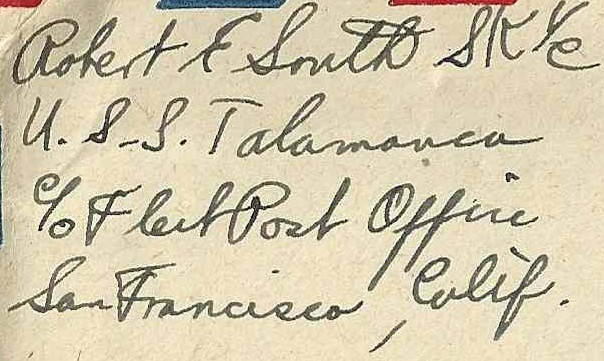 Robert E South SK 1/c
U. S-S. Talamanca
c/o Fleet Post Office
San Francisco, Calif.